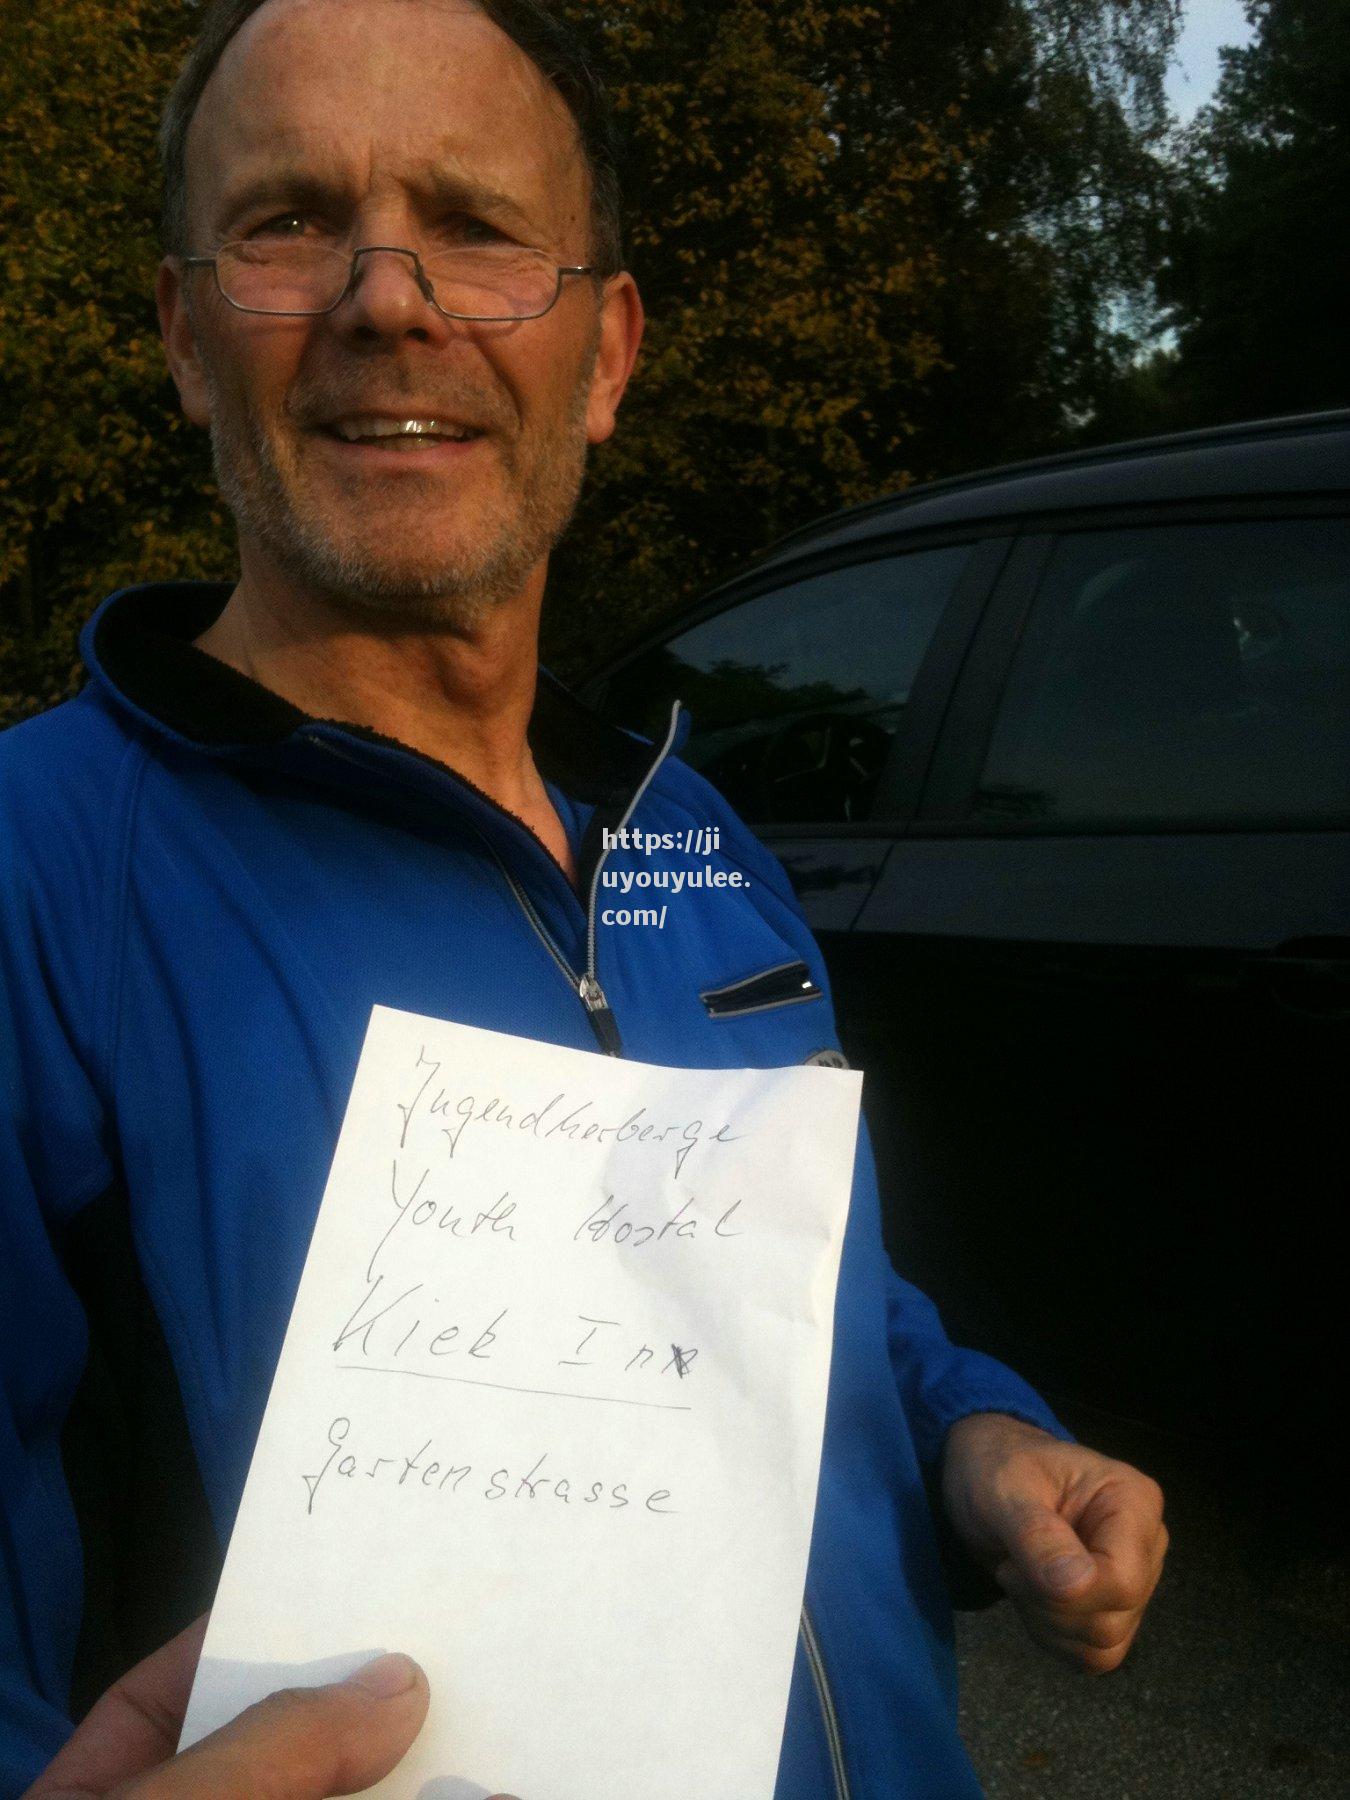 https://ji
uyouyulee.
com/
Jugendherberge
Youth Hostal
Kiek In
Gartenstrasse